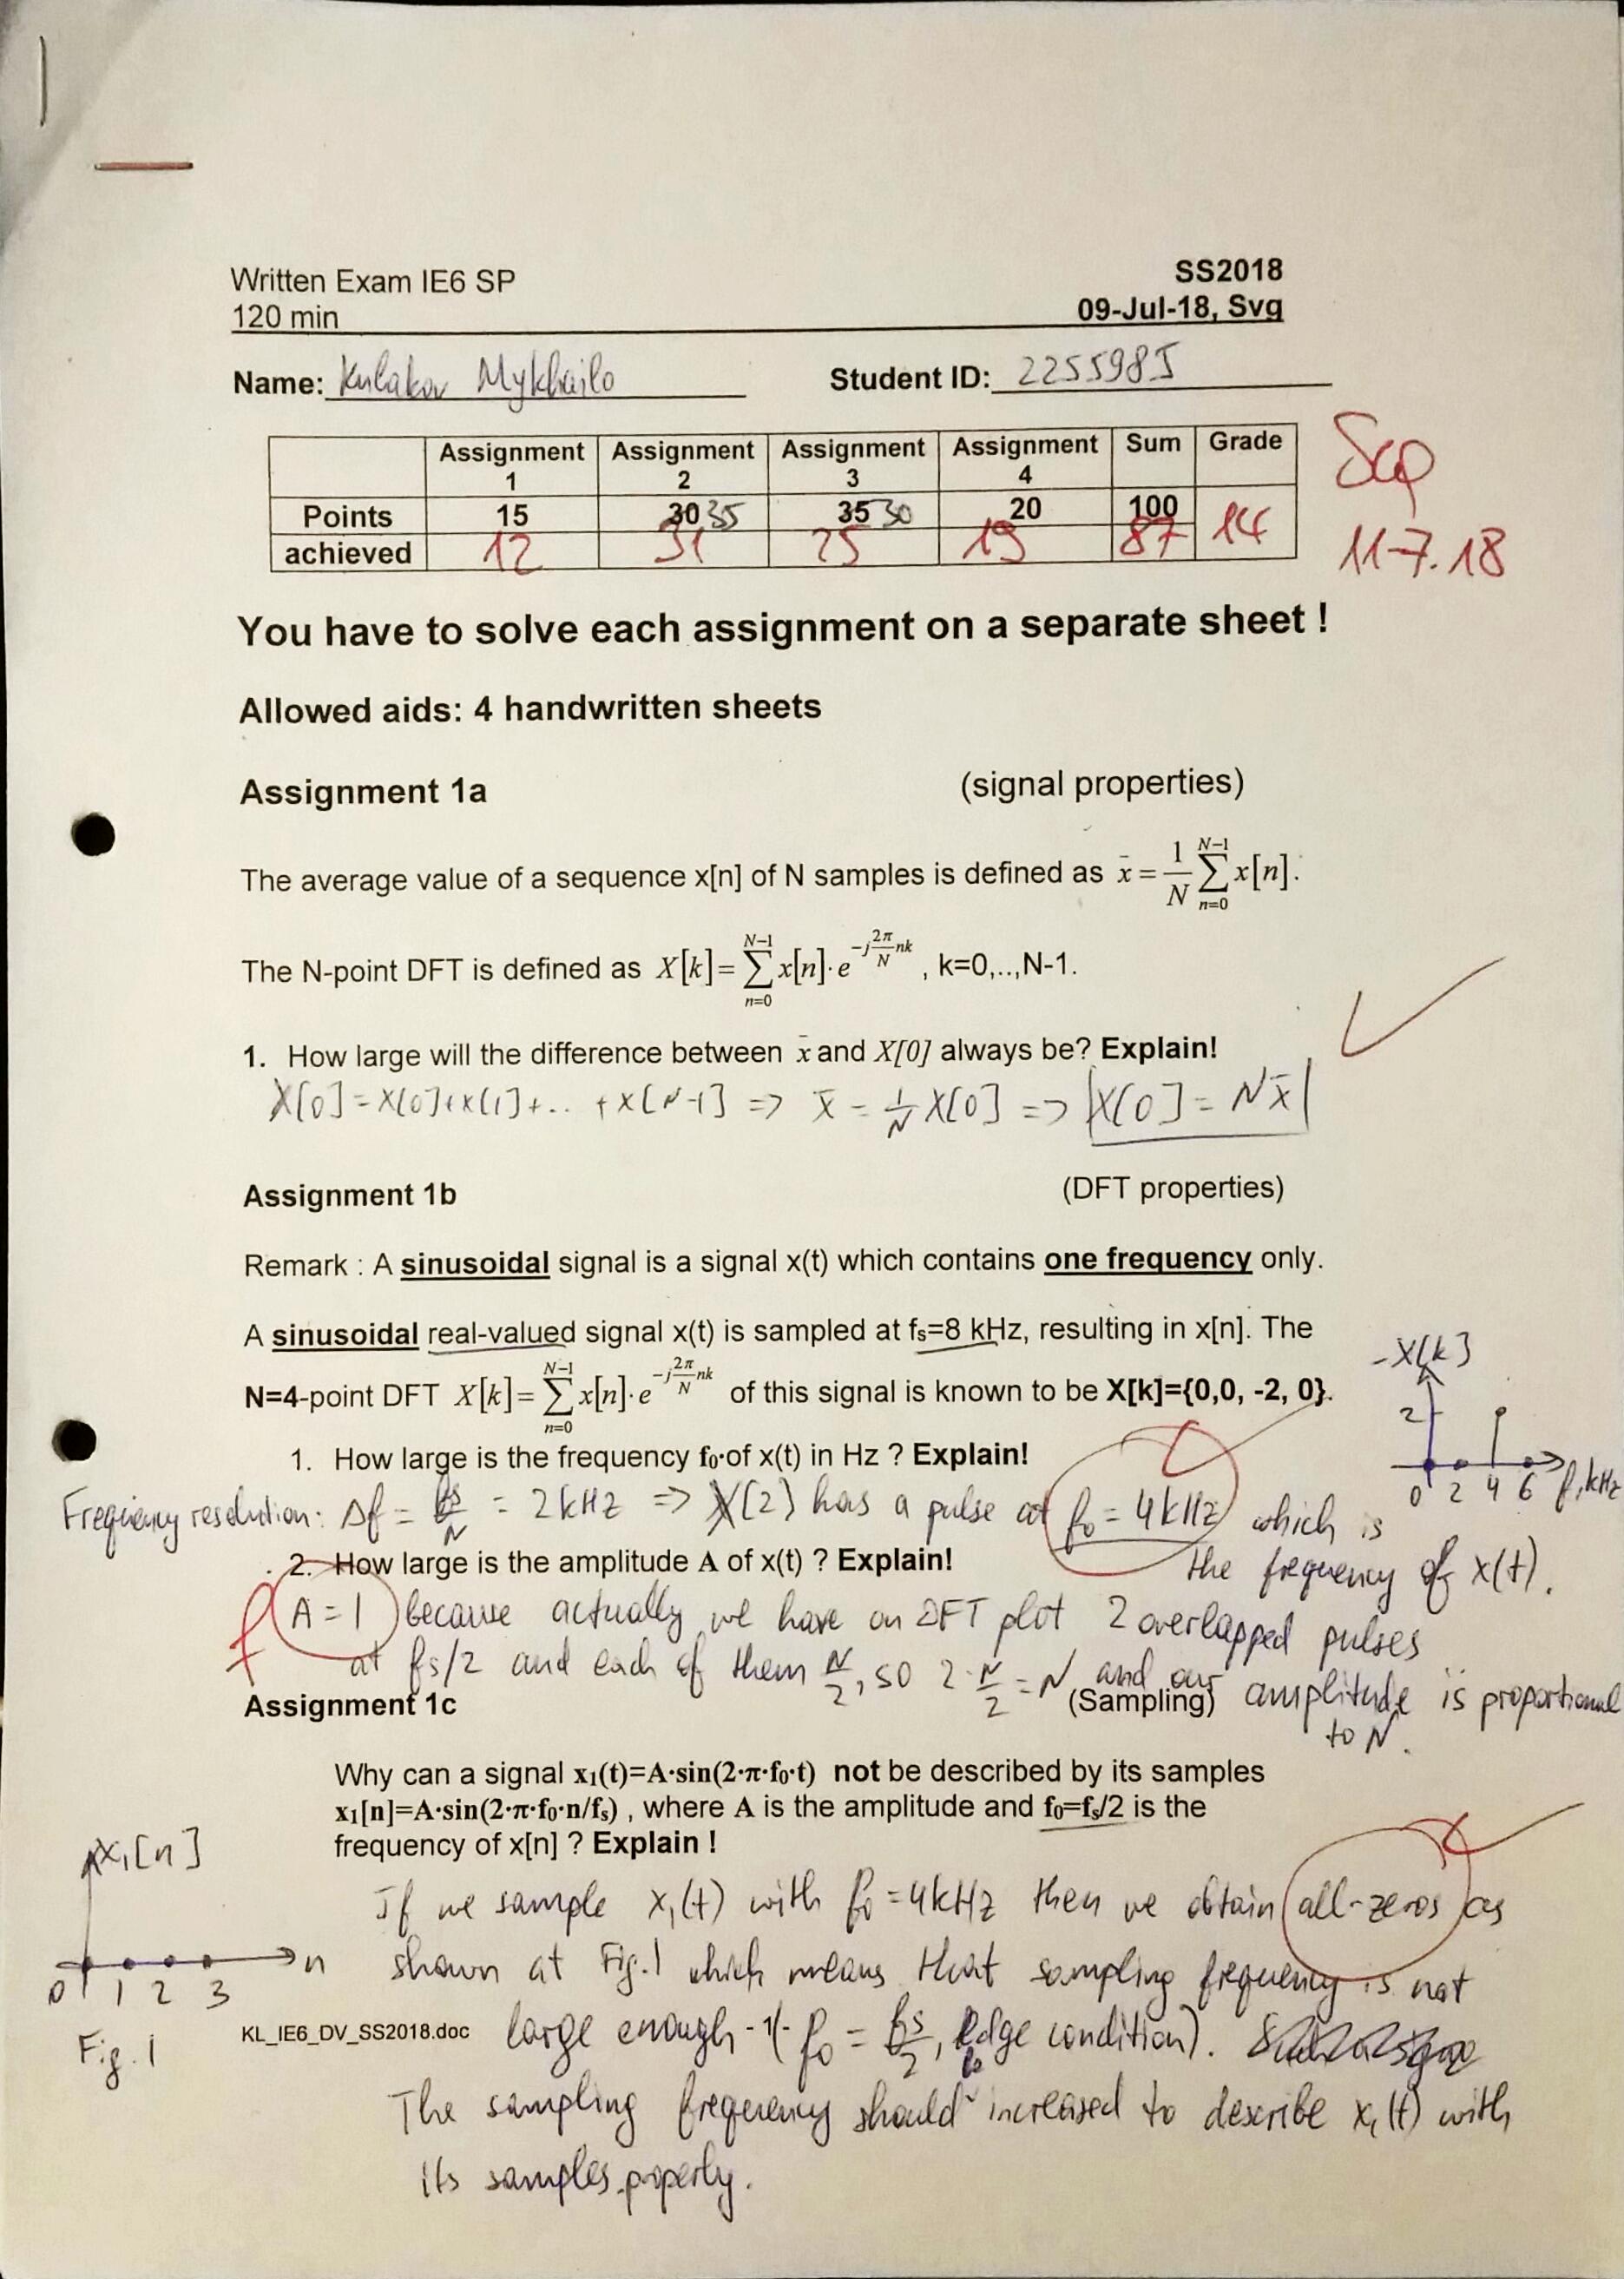 Written Exam IE6 SP
SS2018
120 min
09-Jul-18, Svg
Name: Kulakov Mykhailo
Student ID: 2255985
Assignment 1 Assignment 2 Assignment 3 Assignment 4 Sum Grade
Points 15 30 35 35 30 20 100 14
achieved 12 31 25 19 87
11-7.18
You have to solve each assignment on a separate sheet !
Allowed aids: 4 handwritten sheets
Assignment 1a (signal properties)
The average value of a sequence x[n] of N samples is defined as x̄ = 1/N ∑_{n=0}^{N-1} x[n].
The N-point DFT is defined as X[k]=∑_{n=0}^{N-1} x[n]·e^{-j2π/N nk} , k=0,..,N-1.
1. How large will the difference between x̄ and X[0] always be? Explain!
X[0]=x[0]+x[1]+.. +x[N-1] => x̄ = 1/N X[0] => X[0] = Nx̄
Assignment 1b (DFT properties)
Remark : A sinusoidal signal is a signal x(t) which contains one frequency only.
A sinusoidal real-valued signal x(t) is sampled at fs=8 kHz, resulting in x[n]. The
N=4-point DFT X[k]=∑_{n=0}^{N-1} x[n]·e^{-j2π/N nk} of this signal is known to be X[k]={0,0, -2, 0}.
-X[k]
2
0 2 4 6 f,kHz
1. How large is the frequency f₀ of x(t) in Hz ? Explain!
Frequency resolution: Δf = fs/N = 2kHz => X(2) has a pulse at f₀ = 4kHz which is
the frequency of x(t).
2. How large is the amplitude A of x(t) ? Explain!
A = 1 because actually we have on DFT plot 2 overlapped pulses
at fs/2 and each of them N/2, so 2·N/2 = N and our amplitude is proportional
to N.
Assignment 1c (Sampling)
Why can a signal x₁(t)=A·sin(2·π·f₀·t) not be described by its samples
x₁[n]=A·sin(2·π·f₀·n/fₛ) , where A is the amplitude and f₀=fₛ/2 is the
frequency of x[n] ? Explain !
x₁[n]
0 1 2 3 n
Fig. 1
If we sample x₁(t) with f₀ = 4kHz then we obtain all-zeros as
shown at Fig.1 which means that sampling frequency is not
KL_IE6_DV_SS2018.doc
large enough (f₀ = fs/2, edge condition).
The sampling frequency should be increased to describe x₁(t) with
its samples properly.